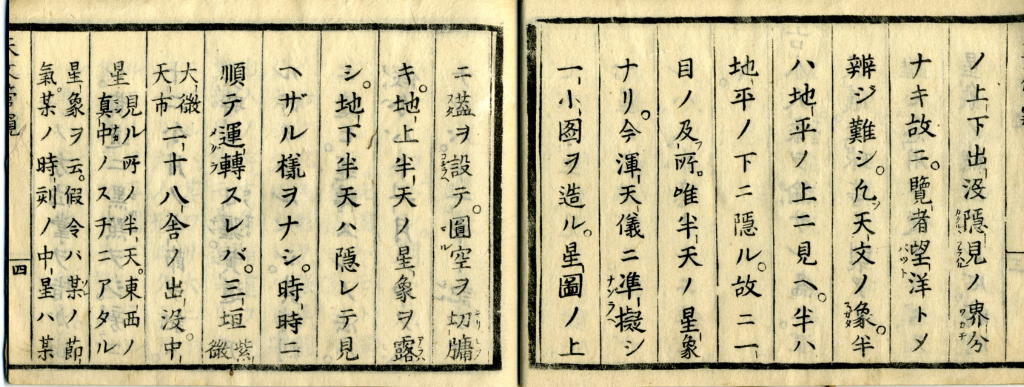 ノ上下出没隠見ノ界分
ナキ故ニ。覽者望洋トメ
辨ジ難シ。凡天文ノ象。半
ハ地平ノ上ニ見ヘ。半ハ
地平ノ下ニ隠ル。故ニ一
目ノ及所。唯半天ノ星象
ナリ。今渾天儀ニ準擬シ
一小图ヲ造ル。星圖ノ上
ニ葢ヲ設テ。圓空ヲ切牗
キ。地上半天ノ星象ヲ露
シ。地下半天ハ隠レテ見
ヘザル様ヲナシ。時時ニ
順テ運轉スレバ。三垣紫微
大微天市二十八舎ノ出没。中
星見ル所ノ半天。東西ノ真中ノスヂニアタル
星象ヲ云。假令ハ某ノ節
氣。某ノ時刻ノ中星ハ某
四